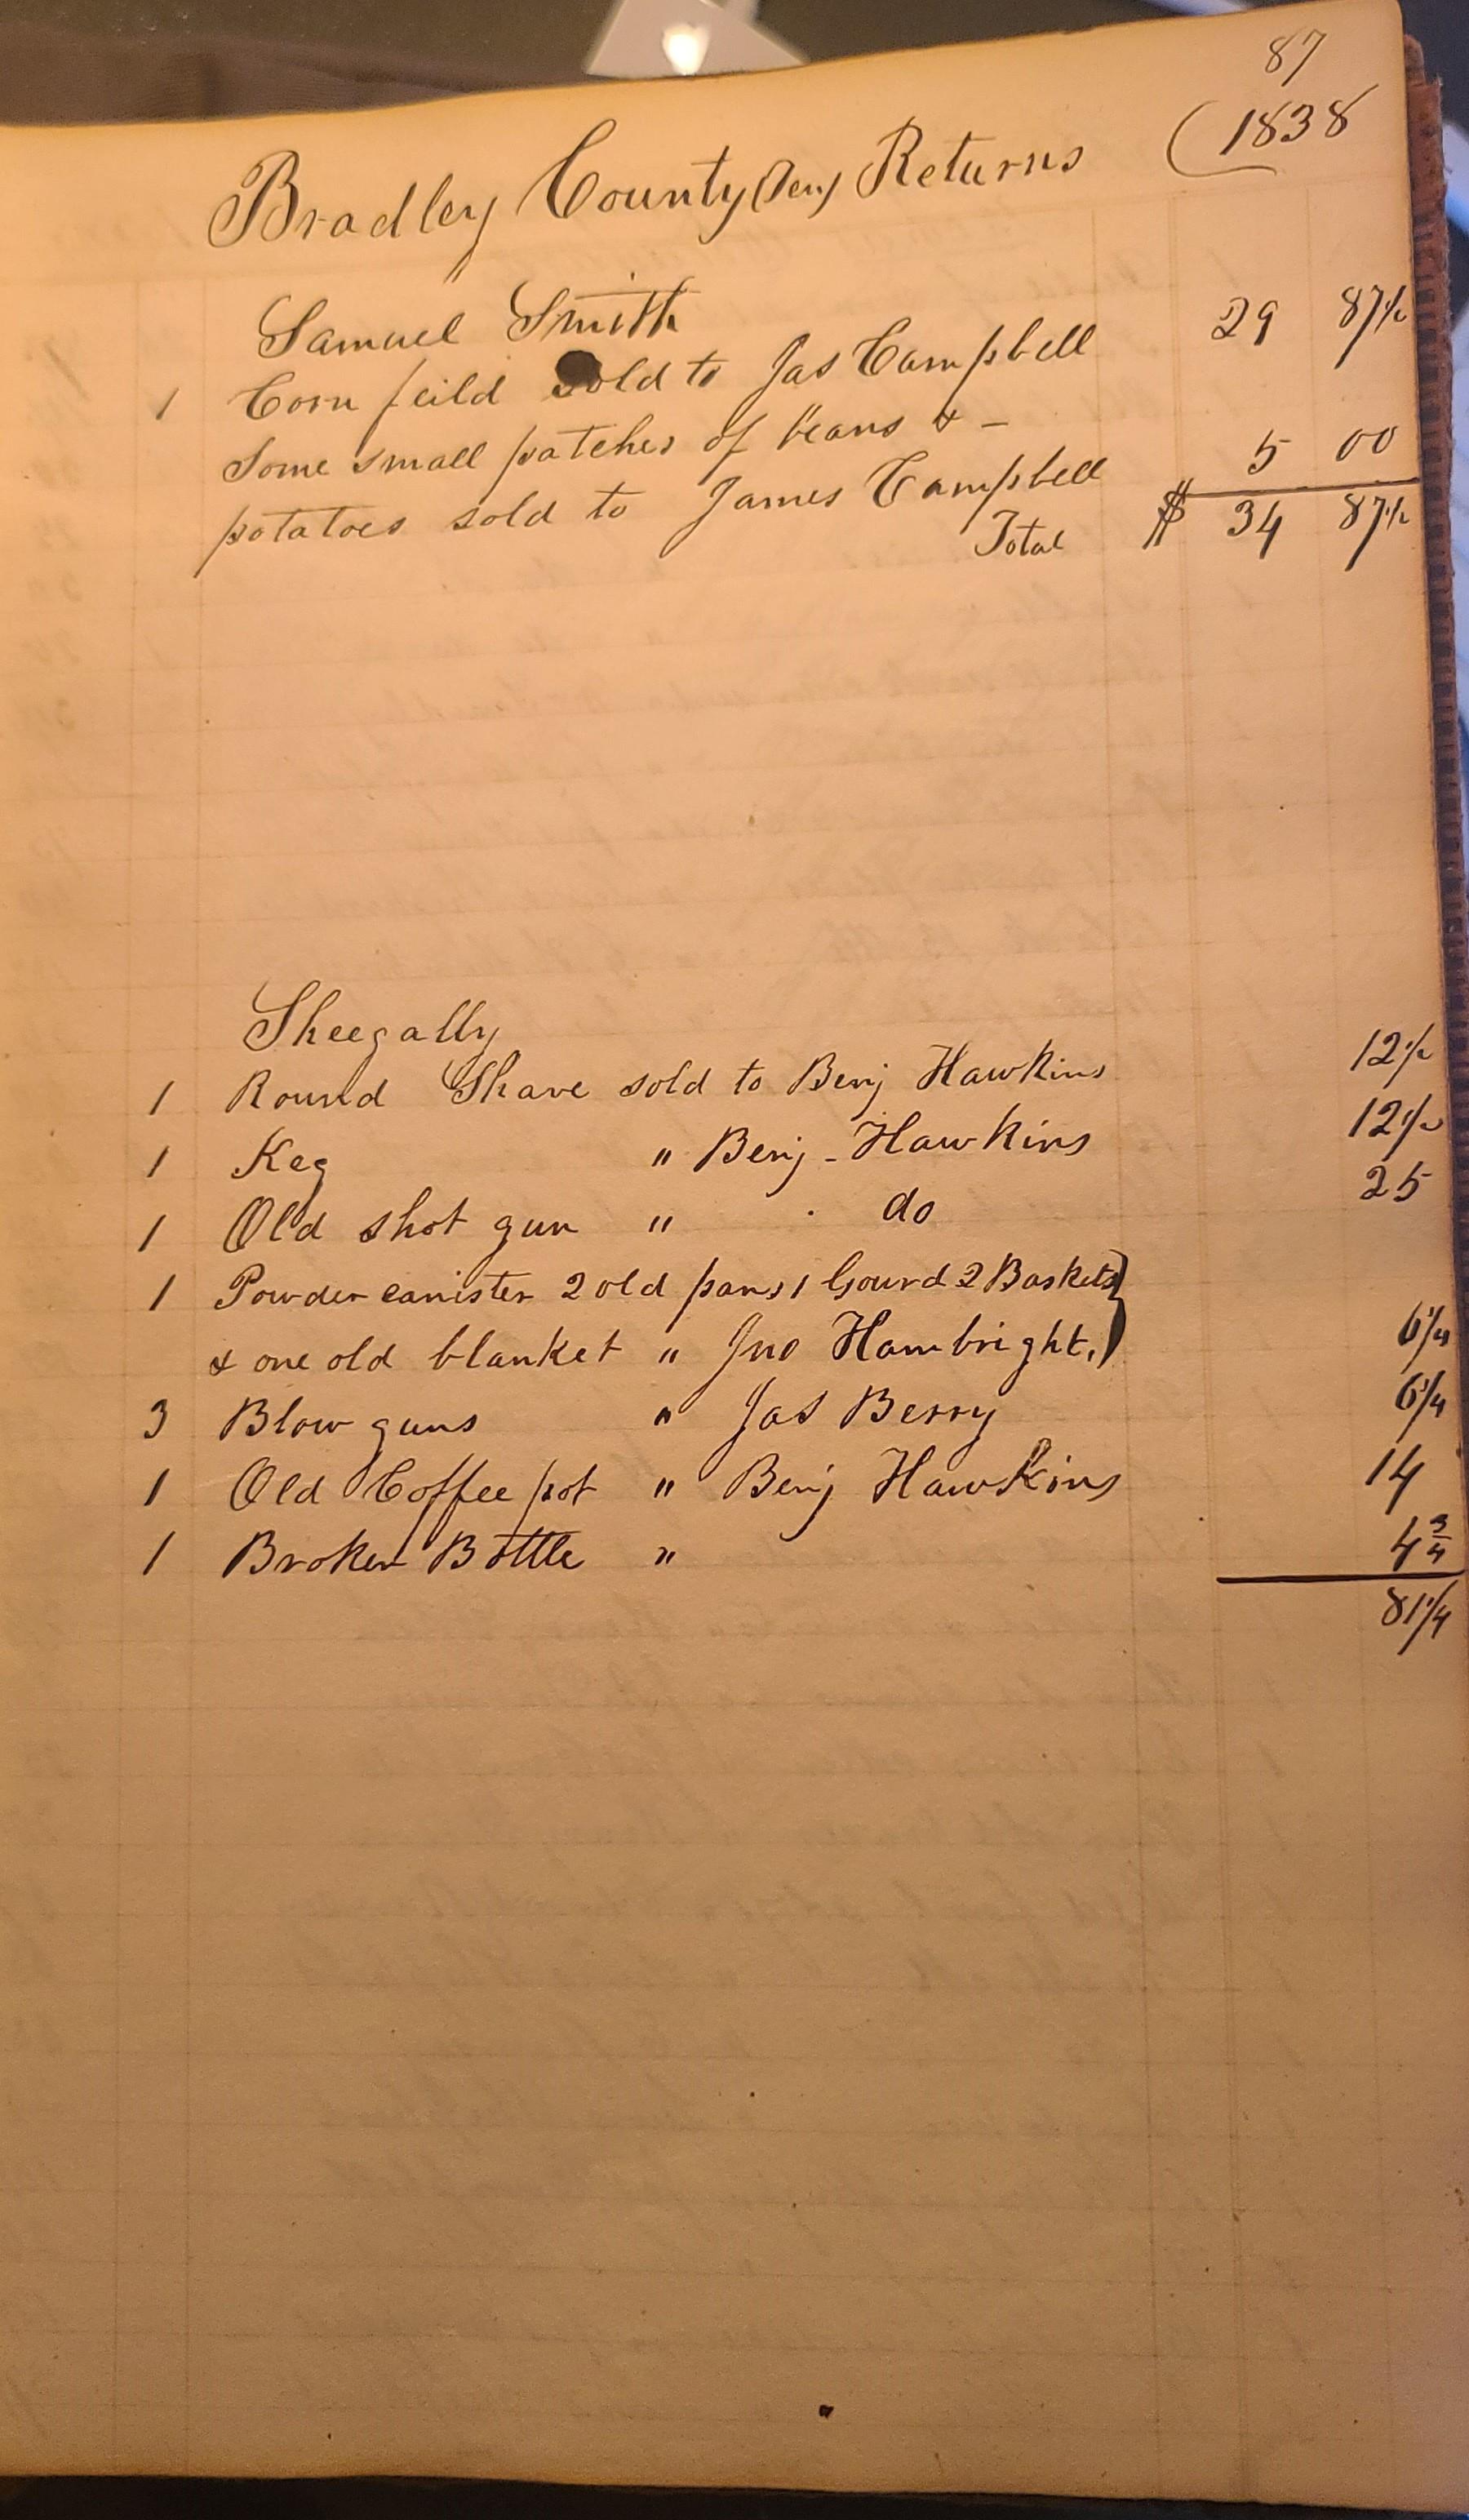 87
Bradley County (Ten) Returns (1838
Samuel Smith
1 Corn feild sold to Jas Campbell 29 87 1/2
Some small patches of beans & -
potatoes sold to James Campbell 5 00
Total $ 34 87 1/2
Sheegally
1 Round Shave sold to Benj Hawkins 12 1/2
1 Keg " Benj - Hawkins 12 1/2
1 Old shot gun " do 25
1 Powder canister 2 old pans 1 Gourd 2 Baskets }
& one old blanket " Jno Hambright, } 6 1/4
3 Blow guns " Jas Berry 6 1/4
1 Old Coffee pot " Benj Hawkins 14
1 Broken Bottle " 4 3/4
81 1/4